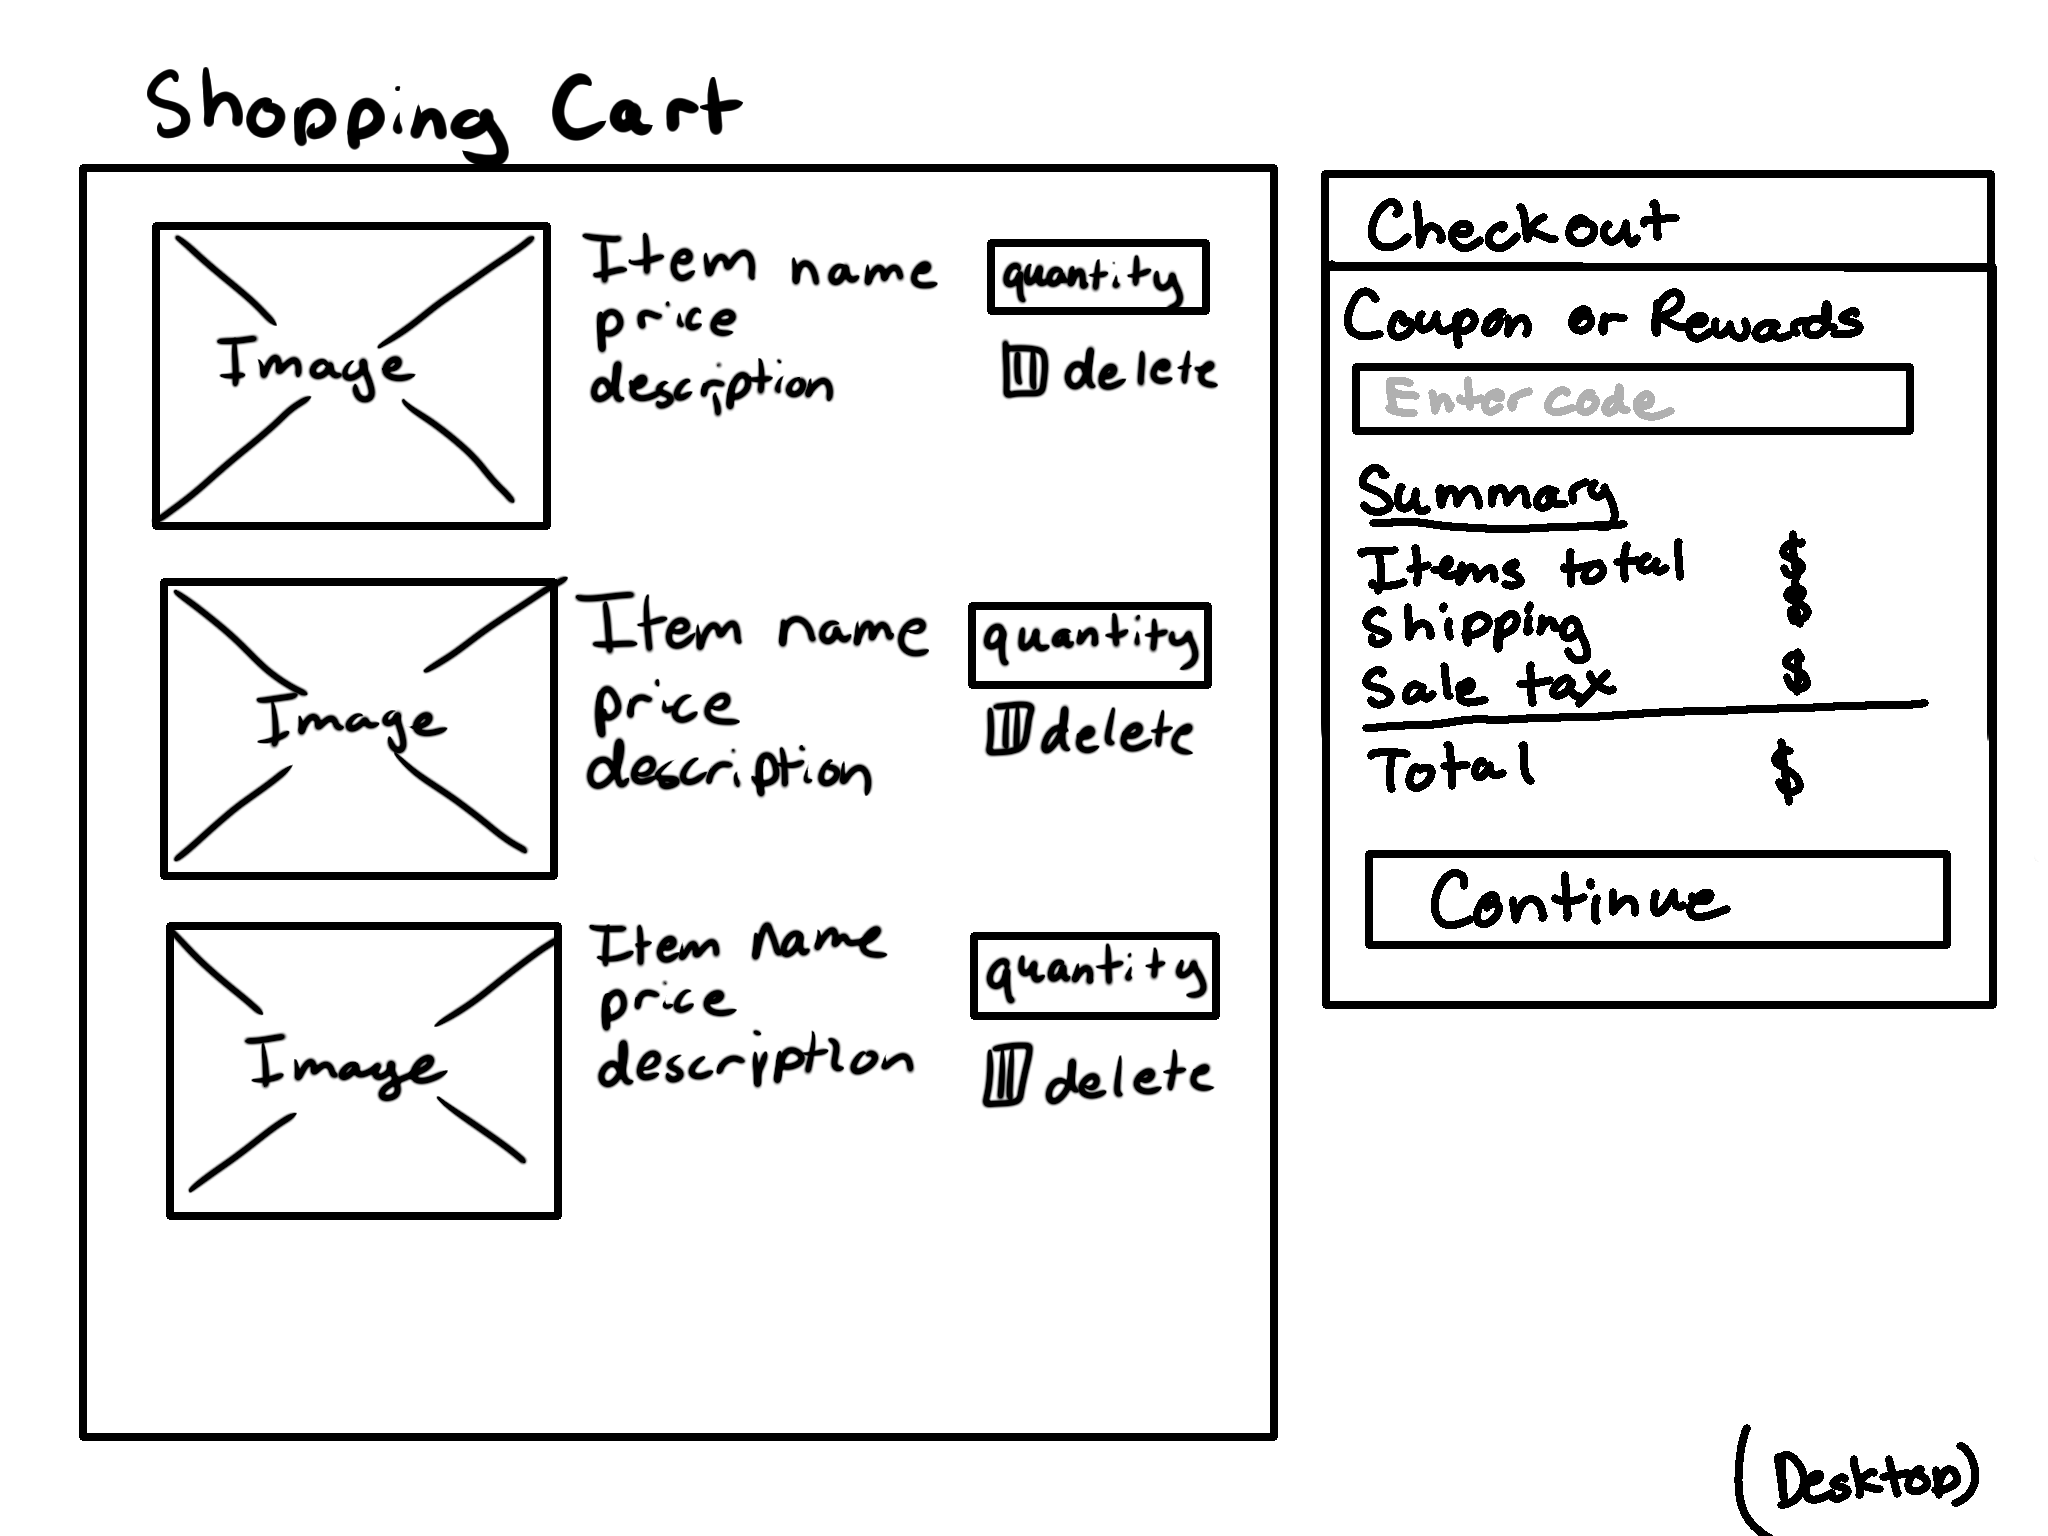 Shopping Cart
Image
Item name
price
description
quantity
delete
Image
Item name
price
description
quantity
delete
Image
Item name
price
description
quantity
delete
Checkout
Coupon or Rewards
Enter code
Summary
Items total $
Shipping $
Sale tax $
Total $
Continue
(Desktop)